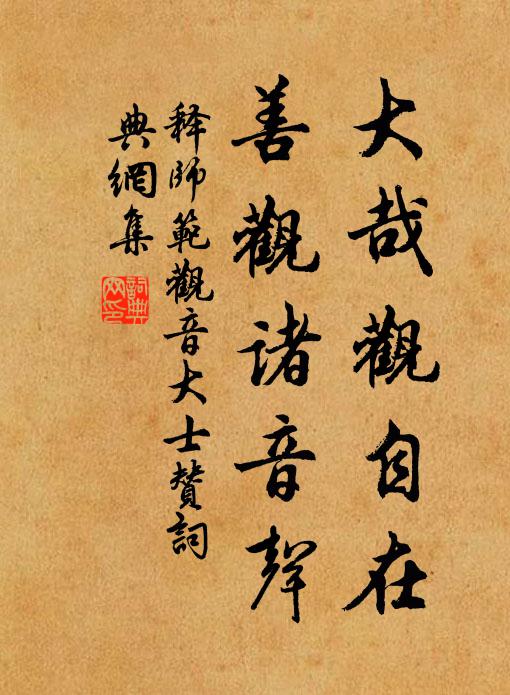 大哉觀自在
善觀諸音聲
释師範觀音大士贊詞
典網集
詞典网印